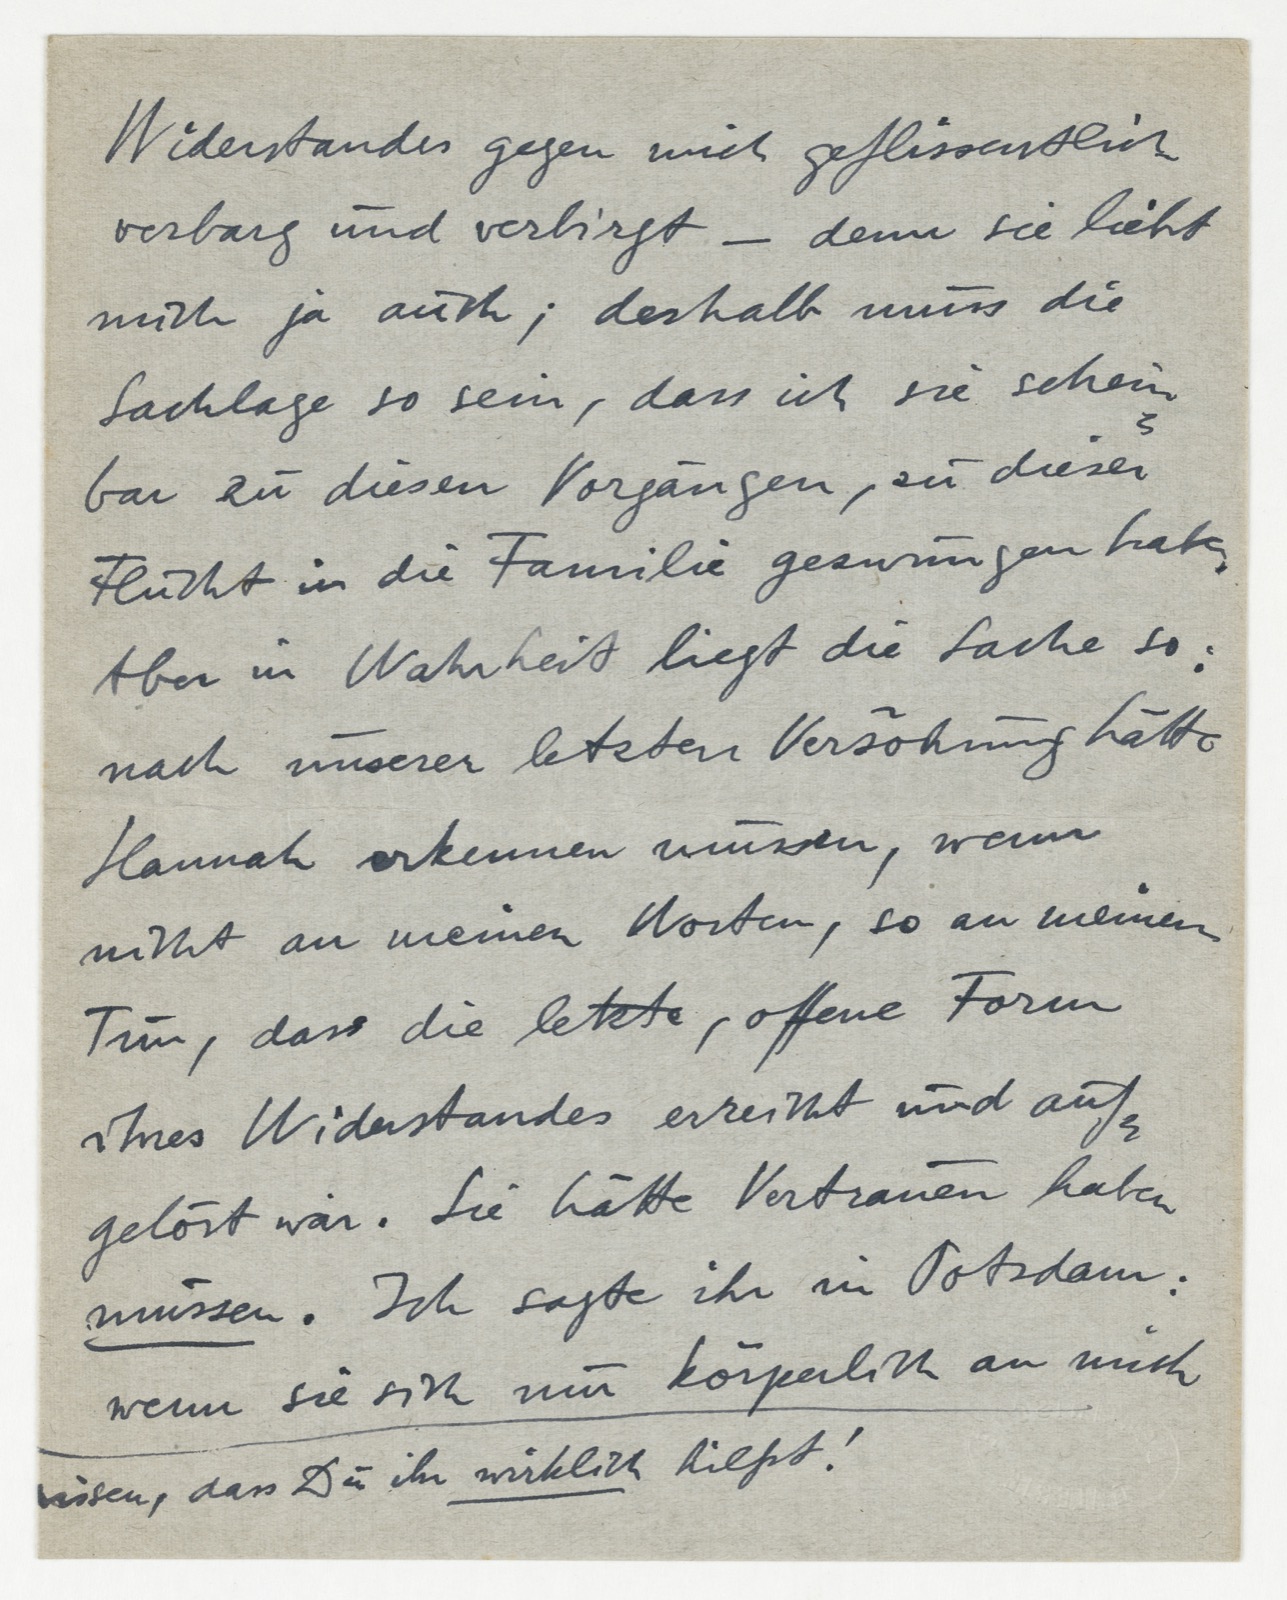 Widerstandes gegen mich geflissentlich
verbarg und verbirgt — denn sie liebt
mich ja auch; deshalb muss die
Sachlage so sein, dass ich sie schein-
bar zu diesen Vorgängen, zu dieser
Flucht in die Familie gezwungen habe.
Aber in Wahrheit liegt die Sache so:
nach unserer letzten Versöhnung hätte
Hannah erkennen müssen, wenn
nicht an meinen Worten, so an meinem
Tun, dass die letzte, offene Form
ihres Widerstandes erreicht und auf-
gelöst war. Sie hätte Vertrauen haben
müssen. Ich sagte ihr in Potsdam:
wenn sie sich nur körperlich an mich
wissen, dass Du ihr wirklich hilfst!